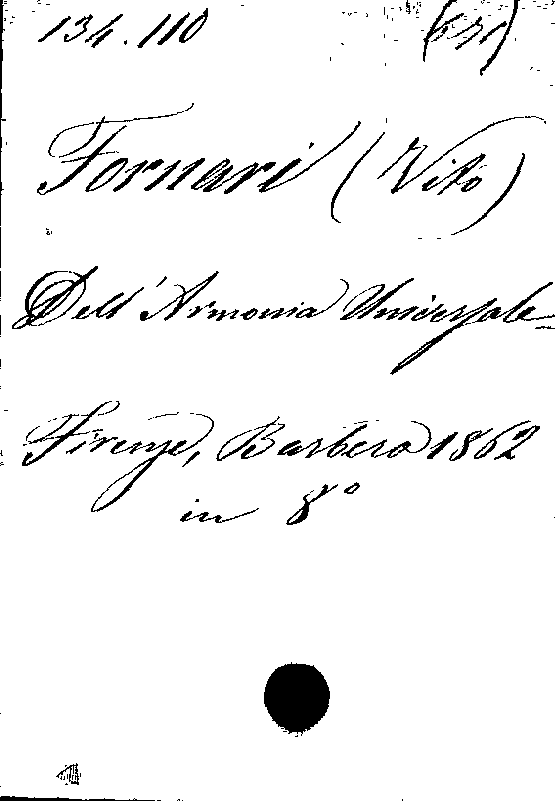 134.110
Fornari (Vito)
Dell'Armonia Universale
Firenze, Barbera 1862
in 8°